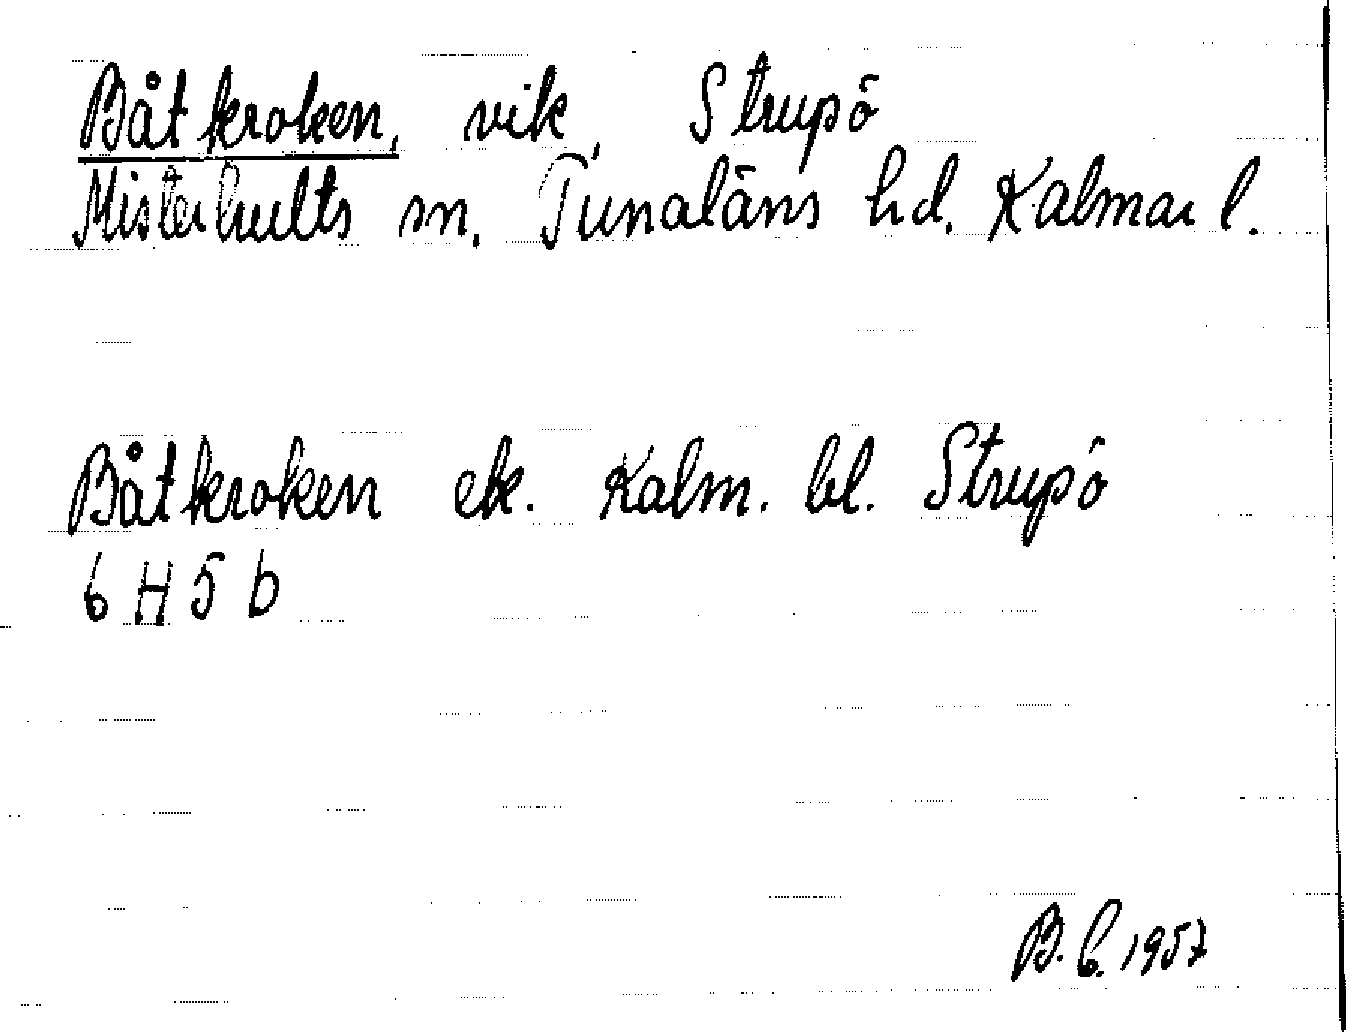 Båtkroken, vik, Strupö
Misterhults sn. Tunaläns hd. Kalmar l.
Båtkroken ek. Kalm. bl. Strupö
6 H 5 b
B. C. 1957